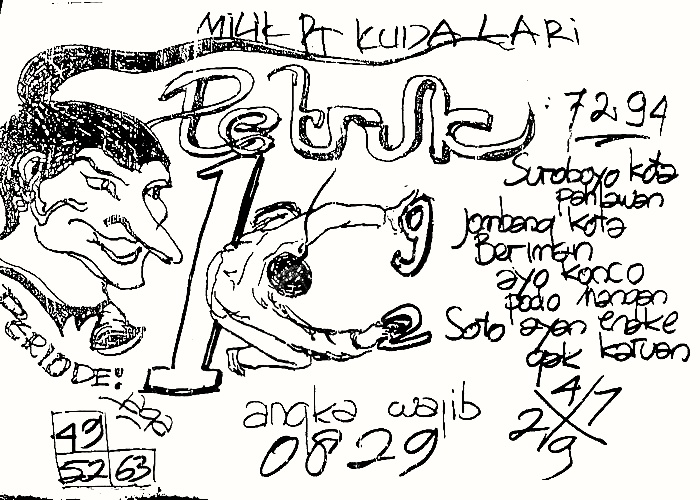 MILIK PT KUDA LARi
Petruk : 7294
Suroboyo kota
pahlawan
Jombang kota
Beriman
ayo konco
podo mangan
Soto ayam enake
gak karuan
1
9
2
PERIODE!
angka wajib
0829
4
2 7
9
49
52 63